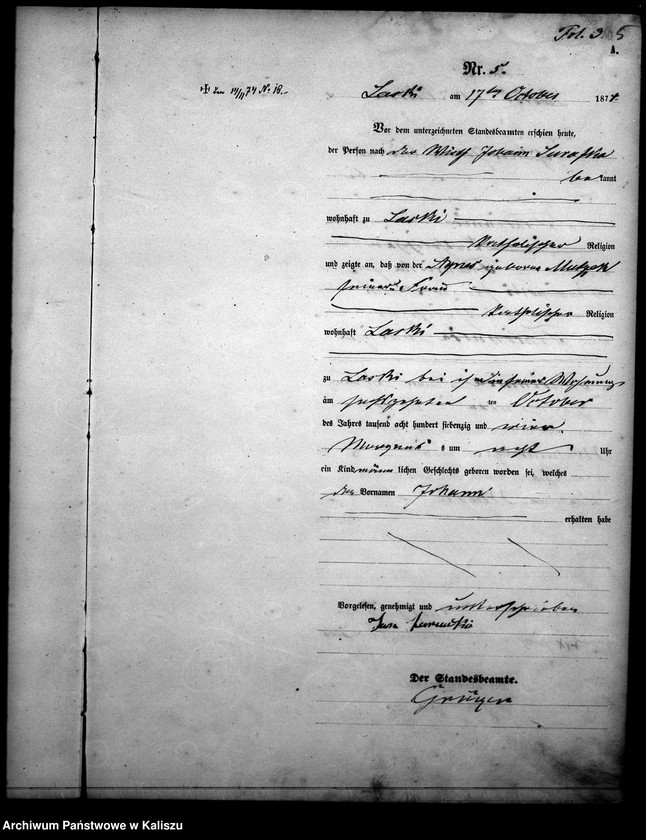 Fol. 3. 5
A.
Nr. 5.
Laski am 17ten October 1874.
Vor dem unterzeichneten Standesbeamten erschien heute,
der Person nach der Wirth Johann
bekannt
wohnhaft zu Laski
katholischer Religion
und zeigte an, daß von der Agnes geborne
seiner Frau
katholischer Religion
wohnhaft Laski
zu Laski bei ihm in seiner Wohnung
am ten October
des Jahres tausend acht hundert siebenzig und vier
Morgens um acht Uhr
ein Kind männlichen Geschlechts geboren worden sei, welches
den Vornamen Johann
erhalten habe
Vorgelesen, genehmigt und unterschrieben
Jan
Der Standesbeamte.
Archiwum Państwowe w Kaliszu